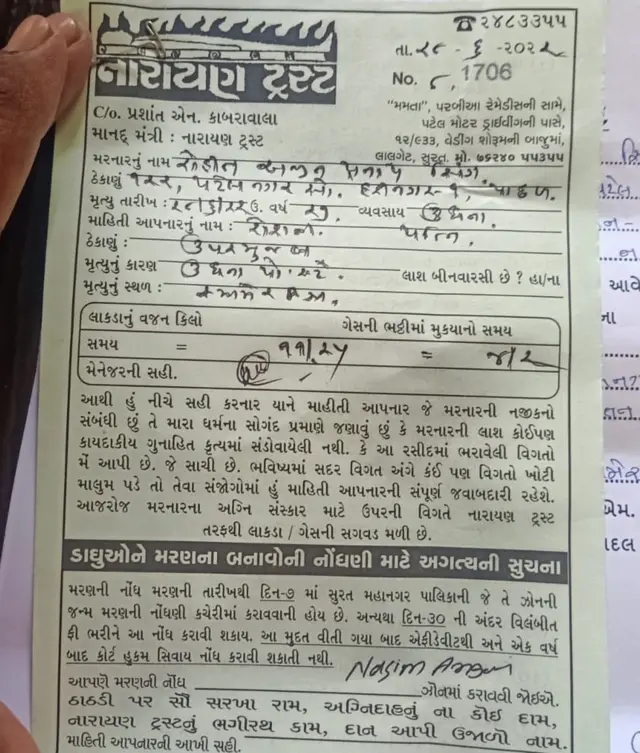 ☎૨૪૮૩૩૫૫
નારાયણ ટ્રસ્ટ
તા. ૨૮ - ૬ - ૨૦૨૨
No. ૮, 1706
C/o. પ્રશાંત એન. કાબરાવાલા
માનદ્ મંત્રી : નારાયણ ટ્રસ્ટ
"મમતા", પરબીઆ રેમેડીસની સામે,
પટેલ મોટર ડ્રાઈવીંગની પાસે,
૧૨/૯૩૩, વેડીંગ શોરૂમની બાજુમાં,
લાલગેટ, સુરત. મો. ૭૬૨૪૦ ૫૫૩૫૫
મરનારનું નામ
ઠેકાણું પટેલ નગર સો. હરીનગર-૧,
મૃત્યુ તારીખ : ઉ. વર્ષ વ્યવસાય ઉધના.
માહિતી આપનારનું નામ : પત્નિ.
ઠેકાણું : ઉપર મુજબ
મૃત્યુનું કારણ ઉધના પો. સ્ટે. લાશ બીનવારસી છે ? હા/ના
મૃત્યુનું સ્થળ :
લાકડાનું વજન કિલો ગેસની ભઠ્ઠીમાં મુકયાનો સમય
સમય = ૧૧/૨૫ = ૪/૨
મેનેજરની સહી.
આથી હું નીચે સહી કરનાર યાને માહીતી આપનાર જે મરનારની નજીકનો
સંબંધી છું તે મારા ધર્મના સોગંદ પ્રમાણે જણાવું છું કે મરનારની લાશ કોઈપણ
કાયદાકીય ગુનાહિત કૃત્યમાં સંડોવાયેલી નથી. કે આ રસીદમાં ભરાવેલી વિગતો
મેં આપી છે. જે સાચી છે. ભવિષ્યમાં સદર વિગત અંગે કંઈ પણ વિગતો ખોટી
માલુમ પડે તો તેવા સંજોગોમાં હું માહિતી આપનારની સંપૂર્ણ જવાબદારી રહેશે.
આજરોજ મરનારના અગ્નિ સંસ્કાર માટે ઉપરની વિગતે નારાયણ ટ્રસ્ટ
તરફથી લાકડા / ગેસની સગવડ મળી છે.
ડાઘુઓને મરણના બનાવોની નોંધણી માટે અગત્યની સુચના
મરણની નોંધ મરણની તારીખથી દિન-૭ માં સુરત મહાનગર પાલિકાની જે તે ઝોનની
જન્મ મરણની નોંધણી કચેરીમાં કરાવવાની હોય છે. અન્યથા દિન-૩૦ ની અંદર વિલંબીત
ફી ભરીને આ નોંધ કરાવી શકાય. આ મુદત વીતી ગયા બાદ એફીડેવીટથી અને એક વર્ષ
બાદ કોર્ટ હુકમ સિવાય નોંધ કરાવી શકાતી નથી.
Nasim
આપણે મરણની નોંધ ઝોનમાં કરાવવી જોઈએ.
ઠાઠડી પર સૌ સરખા રામ, અગ્નિદાહનું ના કોઈ દામ,
નારાયણ ટ્રસ્ટનું ભગીરથ કામ, દાન આપી ઉજાળો નામ.
માહિતી આપનારની આખી સહી.